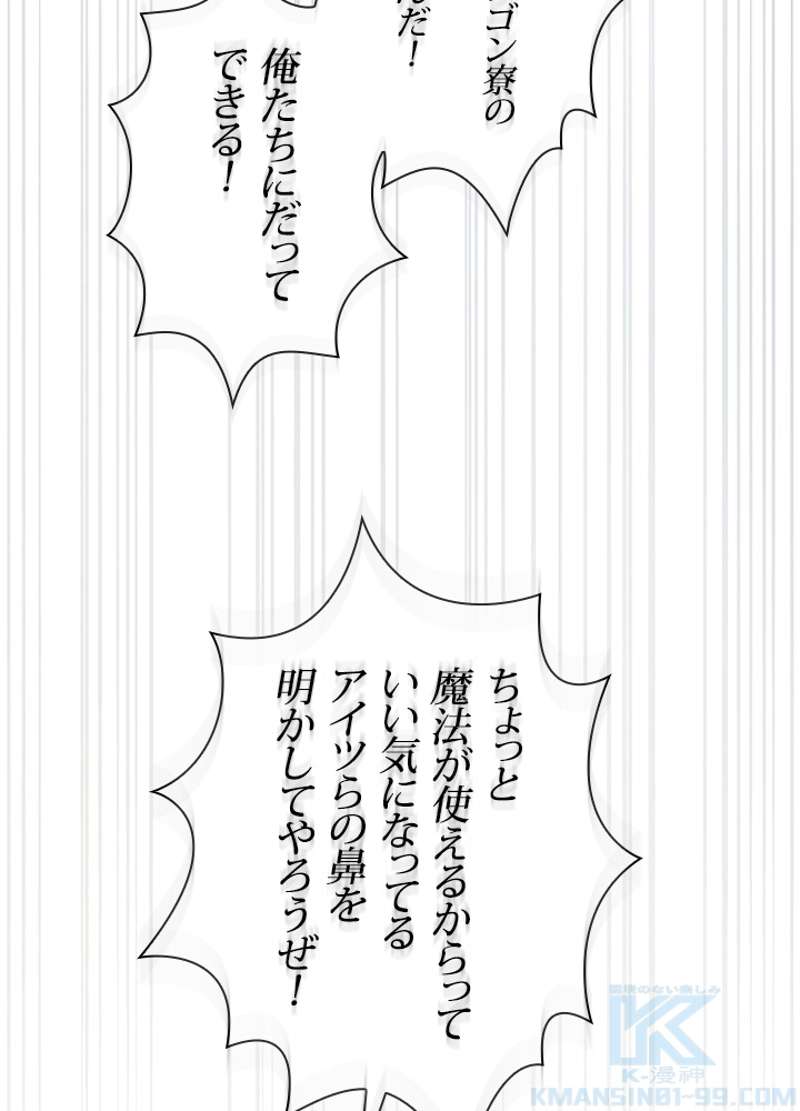 ゴン寮の
んだ！
俺たちにだって
できる！
ちょっと
魔法が使えるからって
いい気になってる
アイツらの鼻を
明かしてやろうぜ！
間接のない楽しみ
K-漫神
KMANSIN01-99.COM